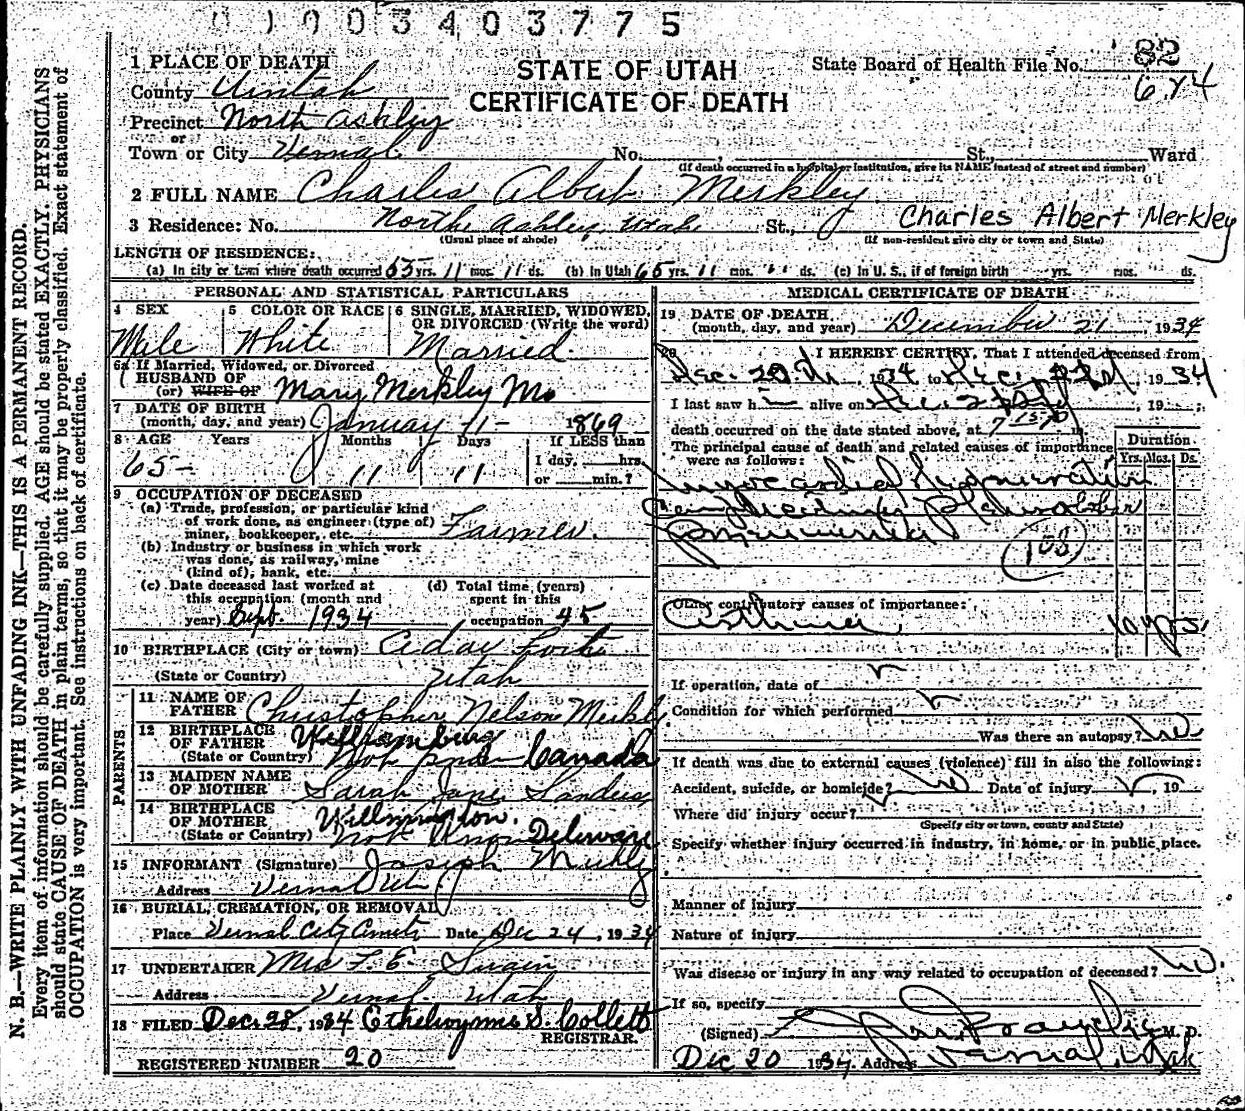 01003403775
STATE OF UTAH
CERTIFICATE OF DEATH
State Board of Health File No. 82
674
1 PLACE OF DEATH
County Uintah
Precinct North Ashley
or
Town or City Vernal No. , St., Ward
(If death occurred in a hospital or institution, give its NAME instead of street and number)
2 FULL NAME Charles Albert Merkley
3 Residence: No. North Ashley, Utah St., Charles Albert Merkley
(Usual place of abode) (If non-resident give city or town and State)
LENGTH OF RESIDENCE:
(a) In city or town where death occurred 55 yrs. 11 mos. 11 ds. (b) In Utah 65 yrs. 11 mos. 11 ds. (c) In U. S., if of foreign birth yrs. mos. ds.
PERSONAL AND STATISTICAL PARTICULARS
4 SEX 5 COLOR OR RACE 6 SINGLE, MARRIED, WIDOWED, OR DIVORCED (Write the word)
Male White Married
6a If Married, Widowed, or Divorced
HUSBAND OF
(or) WIFE OF Mary Merkley Mrs
7 DATE OF BIRTH
(month, day, and year) January 11- 1869
8 AGE Years Months Days If LESS than
65- 11 11 1 day, hrs.
or min.?
9 OCCUPATION OF DECEASED
(a) Trade, profession, or particular kind
of work done, as engineer (type of)
miner, bookkeeper, etc. Farmer.
(b) Industry or business in which work
was done, as railway, mine
(kind of), bank, etc.
(c) Date deceased last worked at (d) Total time (years)
this occupation (month and spent in this
year) Sept. 1934 occupation 45
10 BIRTHPLACE (City or town)
(State or Country) Utah
PARENTS
11 NAME OF
FATHER Christopher Nelson Merkley
12 BIRTHPLACE
OF FATHER Williamsburg
(State or Country) Canada
13 MAIDEN NAME
OF MOTHER Sarah Jane Sanders
14 BIRTHPLACE
OF MOTHER Willmington.
(State or Country) Not Know Delaware
15 INFORMANT (Signature) Joseph Merkley
Address Vernal Utah
16 BURIAL, CREMATION, OR REMOVAL
Place Vernal City Date Dec 24, 1934
17 UNDERTAKER Mrs F. E. Swain
Address Vernal Utah
18 FILED Dec. 28, 1934 Ethelwynne S. Collett
REGISTRAR.
REGISTERED NUMBER 20
MEDICAL CERTIFICATE OF DEATH
19 DATE OF DEATH
(month, day, and year) December 21, 1934
20 I HEREBY CERTIFY, That I attended deceased from
Dec. 20th, 1934 to Dec. 21st, 1934
I last saw h alive on Dec. 21st, 19 ;
death occurred on the date stated above, at 7 m.
The principal cause of death and related causes of importance
were as follows:
Duration
Yrs. Mos. Ds.
Myocardial degeneration
Pneumonia
108
Other contributory causes of importance:
Asthma 10 yrs.
If operation, date of
Condition for which performed
Was there an autopsy? No
If death was due to external causes (violence) fill in also the following:
Accident, suicide, or homicide? No Date of injury , 19
Where did injury occur?
(Specify city or town, county and State)
Specify whether injury occurred in industry, in home, or in public place.
Manner of injury
Nature of injury
Was disease or injury in any way related to occupation of deceased? No.
If so, specify
(Signed) M. D.
Dec 20 1934. Address Vernal Utah
N. B.—WRITE PLAINLY WITH UNFADING INK—THIS IS A PERMANENT RECORD.
Every item of information should be carefully supplied. AGE should be stated EXACTLY. PHYSICIANS
should state CAUSE OF DEATH in plain terms, so that it may be properly classified. Exact statement of
OCCUPATION is very important. See instructions on back of certificate.